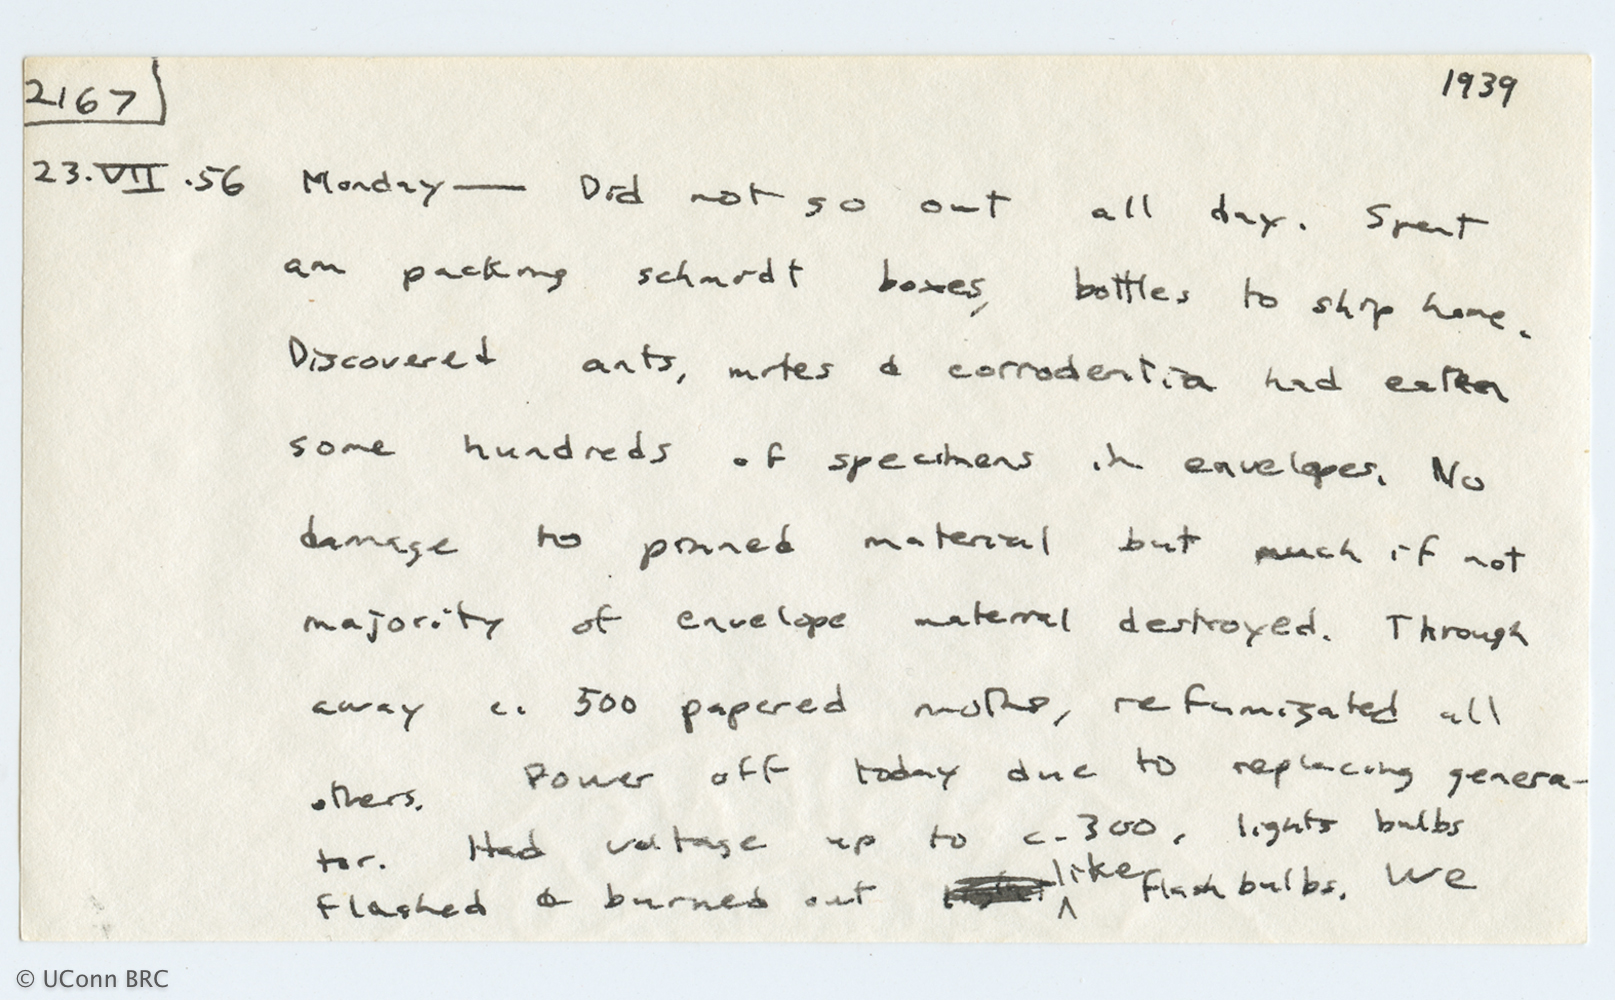 2167
1939
23.VII.56 Monday — Did not go out all day. Spent
am packing schmidt boxes, bottles to ship home.
Discovered ants, mites & corrodentia had eaten
some hundreds of specimens in envelopes. No
damage to pinned material but much if not
majority of envelope material destroyed. Through
away c. 500 papered moths, refumigated all
others. Power off today due to replacing genera-
tor. Had voltage up to c. 300, lights bulbs
flashed & burned out like flash bulbs. We
© UConn BRC